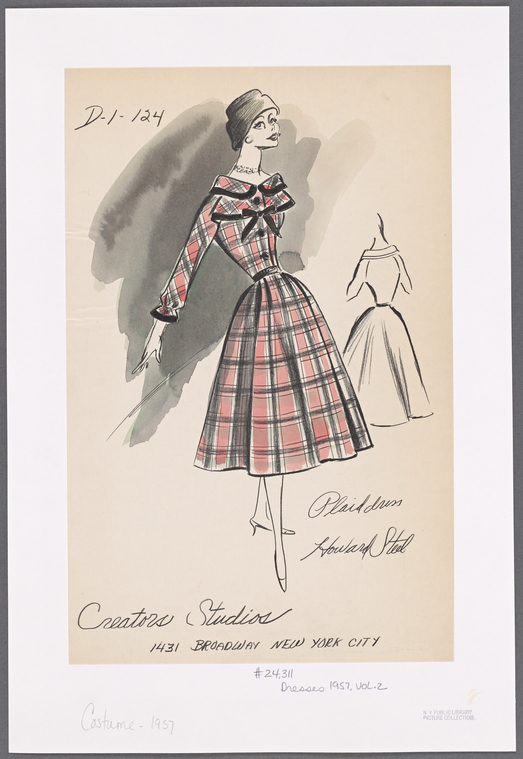 D-1-124
Plaid dress
Howard Steel
Creators Studios
1431 BROADWAY NEW YORK CITY
#24,311
Dresses 1957, VOL.2
Costume - 1957
N. Y. PUBLIC LIBRARY
PICTURE COLLECTION